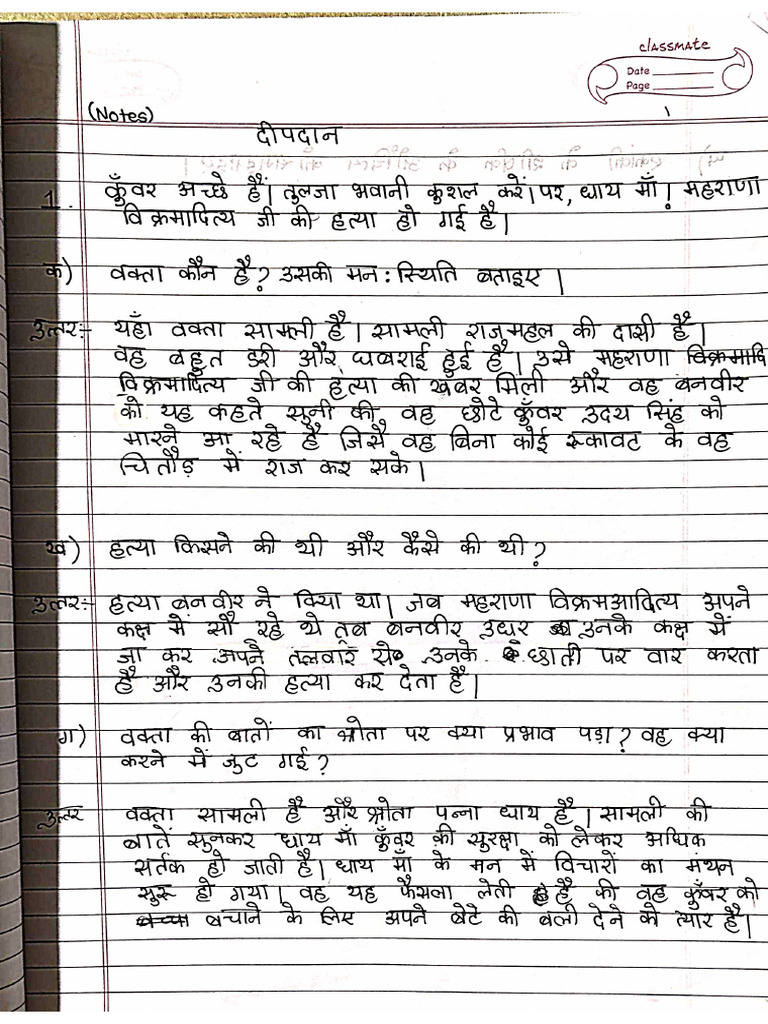 classmate
Date
Page
1
(Notes)
दीपदान
1. कुँवर अच्छे हैं। तुलजा भवानी कुशल करें। पर, धाय माँ! महराणा
विक्रमादित्य जी की हत्या हो गई है।
क) वक्ता कौन है? उसकी मन: स्थिति बताइए।
उत्तर:- यहाँ वक्ता सामली है। सामली राजमहल की दासी है।
वह बहुत डरी और घबराई हुई है। उसे महराणा विक्रमादि
विक्रमादित्य जी की हत्या की खबर मिली और वह बनवीर
को यह कहते सुनी की वह छोटे कुँवर उदय सिंह को
मारने आ रहे है जिसे वह बिना कोई रुकावट के वह
चितौड़ में राज कर सके।
ख) हत्या किसने की थी और कैसे की थी?
उत्तर:- हत्या बनवीर ने किया था। जब महराणा विक्रमआदित्य अपने
कक्ष में सो रहे थे तब बनवीर उधर उनके कक्ष में
जा कर अपने तलवार से उनके छाती पर वार करता
है और उनकी हत्या कर देता है।
ग) वक्ता की बातों का श्रोता पर क्या प्रभाव पड़ा? वह क्या
करने में जुट गई?
उत्तर वक्ता सामली है और श्रोता पन्ना धाय है। सामली की
बातें सुनकर धाय माँ कुँवर की सुरक्षा को लेकर अधिक
सर्तक हो जाती है। धाय माँ के मन में विचारों का मंथन
सुरू हो गया। वह यह फैसला लेती है की वह कुँवर को
बचाने के लिए अपने बेटे की बली देने को त्यार है।